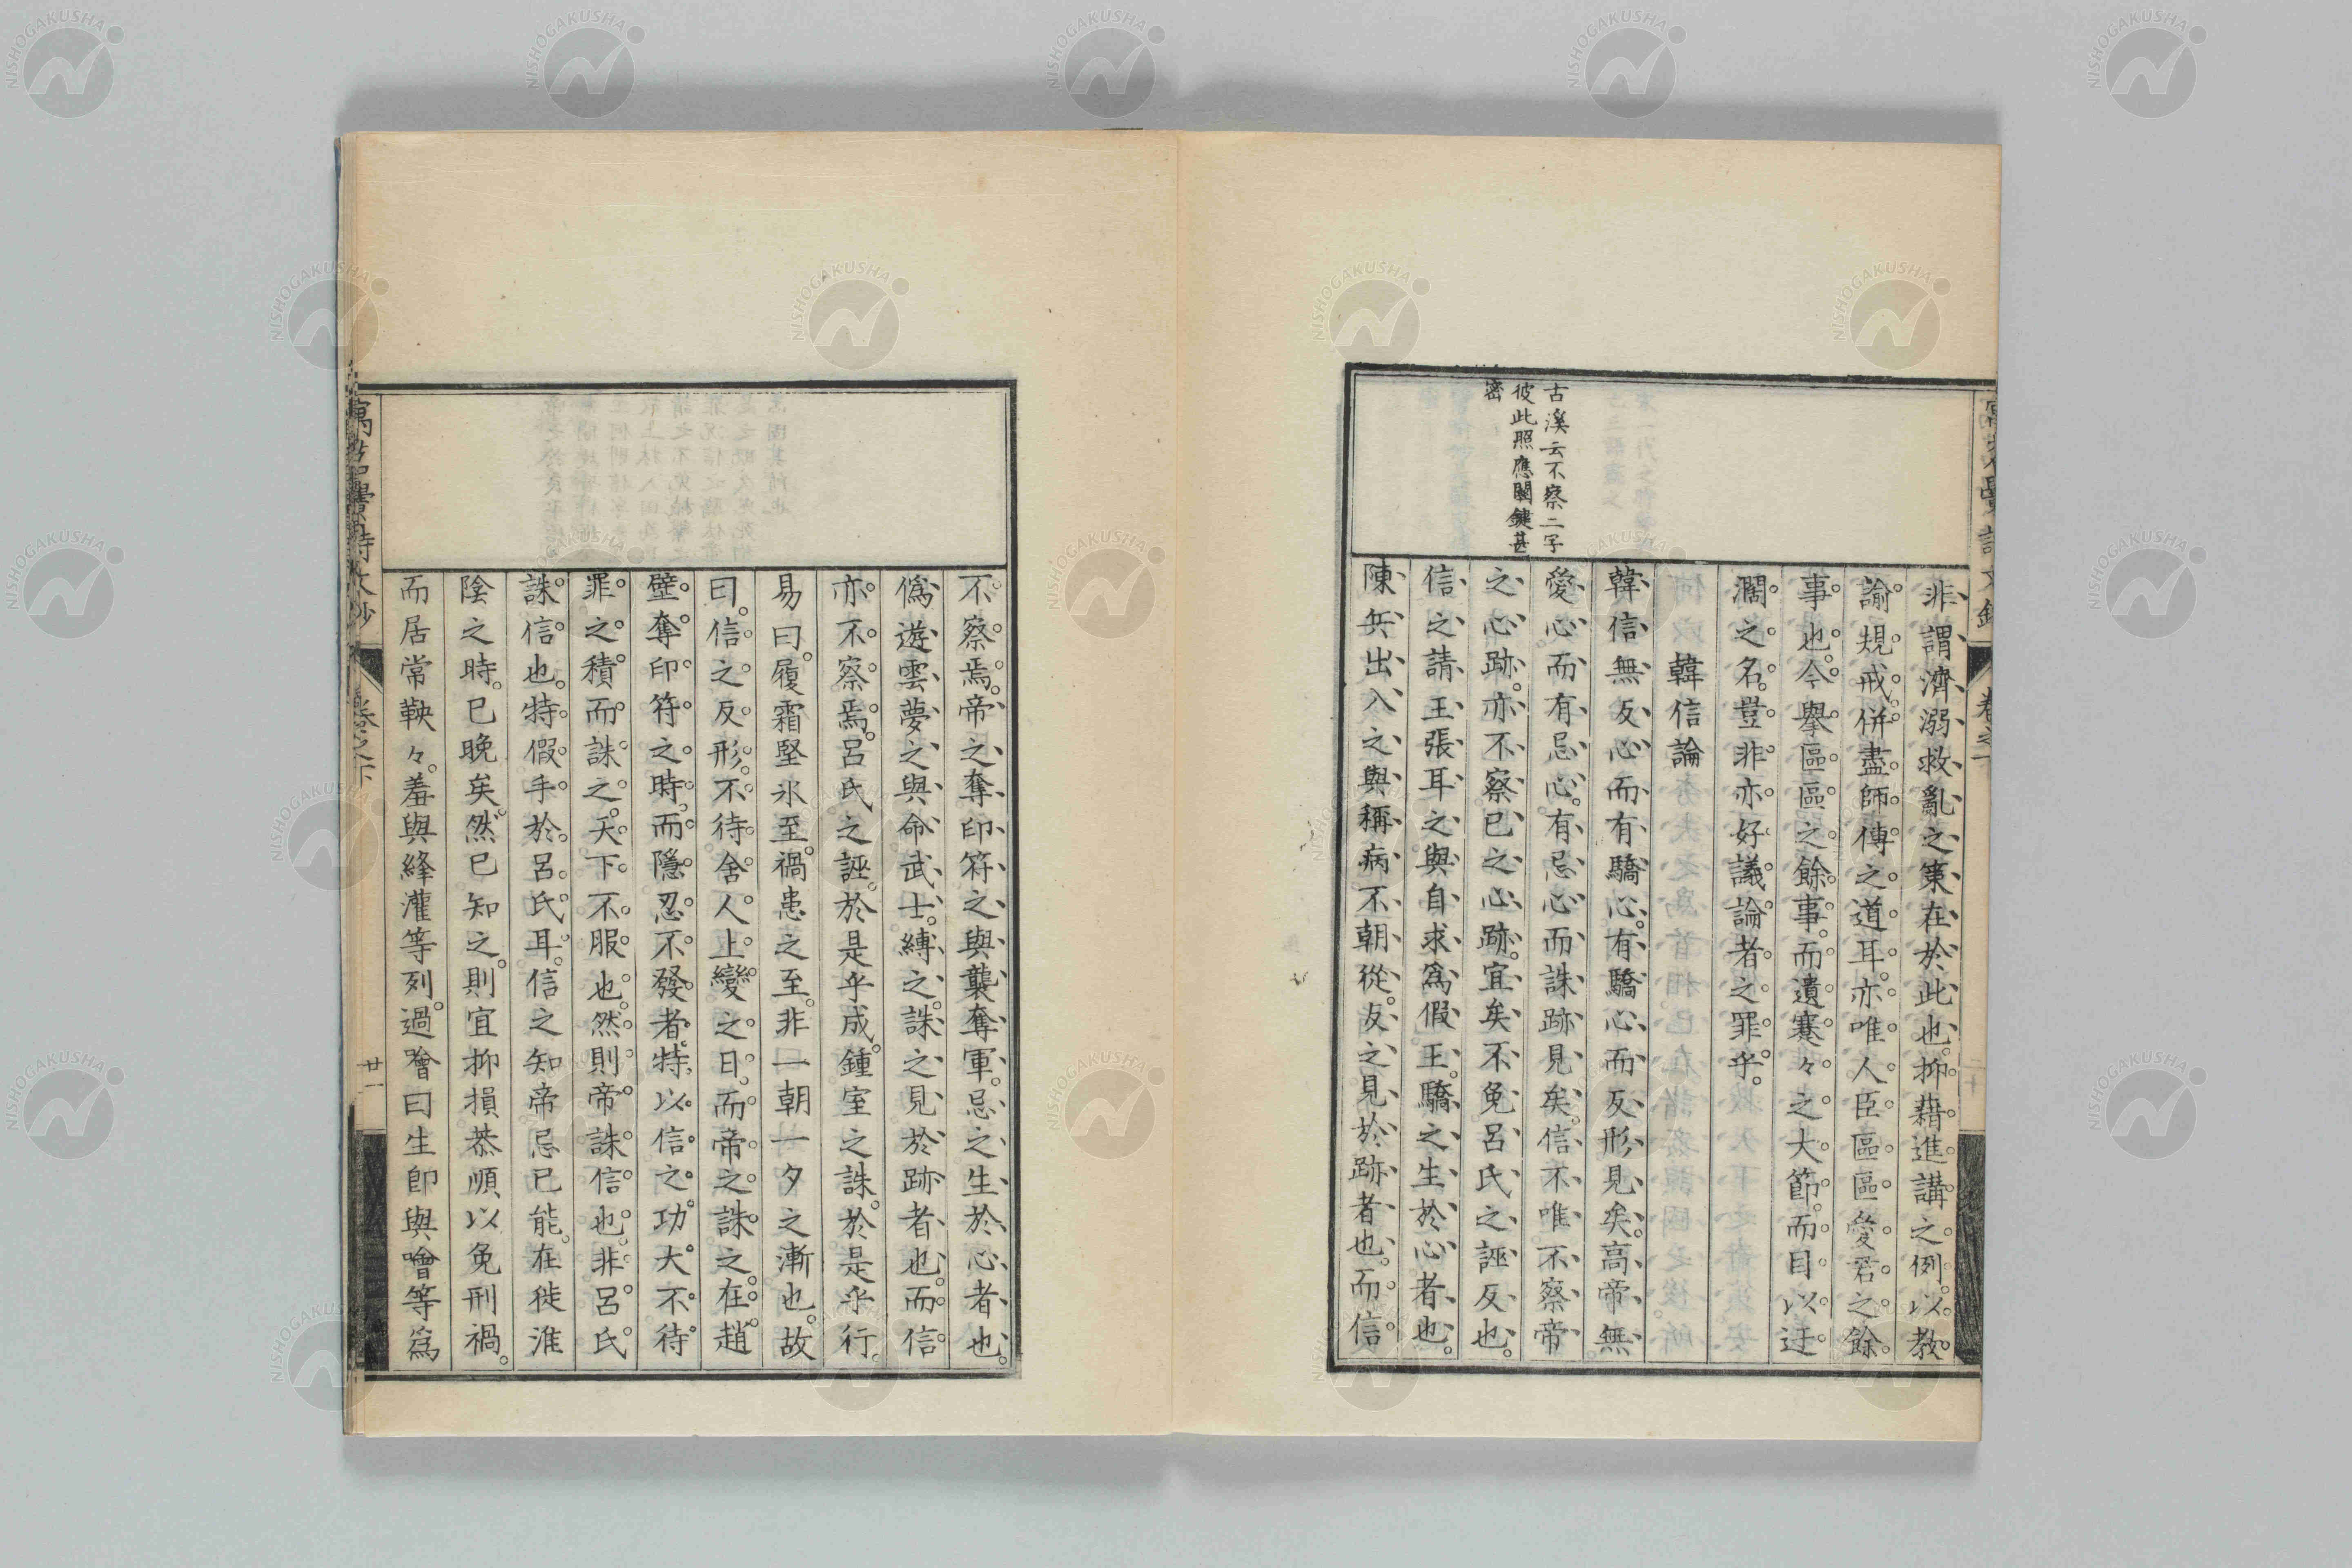 古溪云不察二字
彼此照應關鍵甚
密
非謂濟溺救亂之策在於此也。抑藉進講之例。以教
諭規戒併盡師傅之道耳。亦唯人臣區區愛君之餘
事也。今擧區區之餘事。而遺蹇々之大節。而目以迂
濶之名。豈非亦好議論者之罪乎。
韓信論
韓信無反心而有驕心。有驕心而反形見矣。高帝無
愛心而有忌心。有忌心而誅跡見矣。信不唯不察帝
之心跡。亦不察已之心跡。宜矣不免呂氏之誣反也。
信之請王張耳之與自求爲假王。驕之生於心者也。
陳兵出入之與稱病不朝從。反之見於跡者也。而信
不察焉。帝之奪印符之與襲奪軍。忌之生於心者也。
僞遊雲夢之與命武士。縛之。誅之見於跡者也。而信
亦不察焉。呂氏之誣。於是乎成。鍾室之誅。於是乎行。
易曰。履霜堅氷至。禍患之至。非一朝一夕之漸也。故
曰。信之反形。不待舍人上變之日。而帝之誅之。在趙
壁奪印符之時。而隱忍不發者。特以信之功大。不待
罪之積而誅之。天下不服也。然則帝誅信也。非呂氏
誅信也。特假手於呂氏耳。信之知帝忌已能。在徙淮
陰之時。已晚矣。然已知之。則宜抑損恭順以免刑禍。
而居常鞅々。羞與絳灌等列。過噲曰生卽與噲等爲
卷之下
廿一
NISHOGAKUSHA